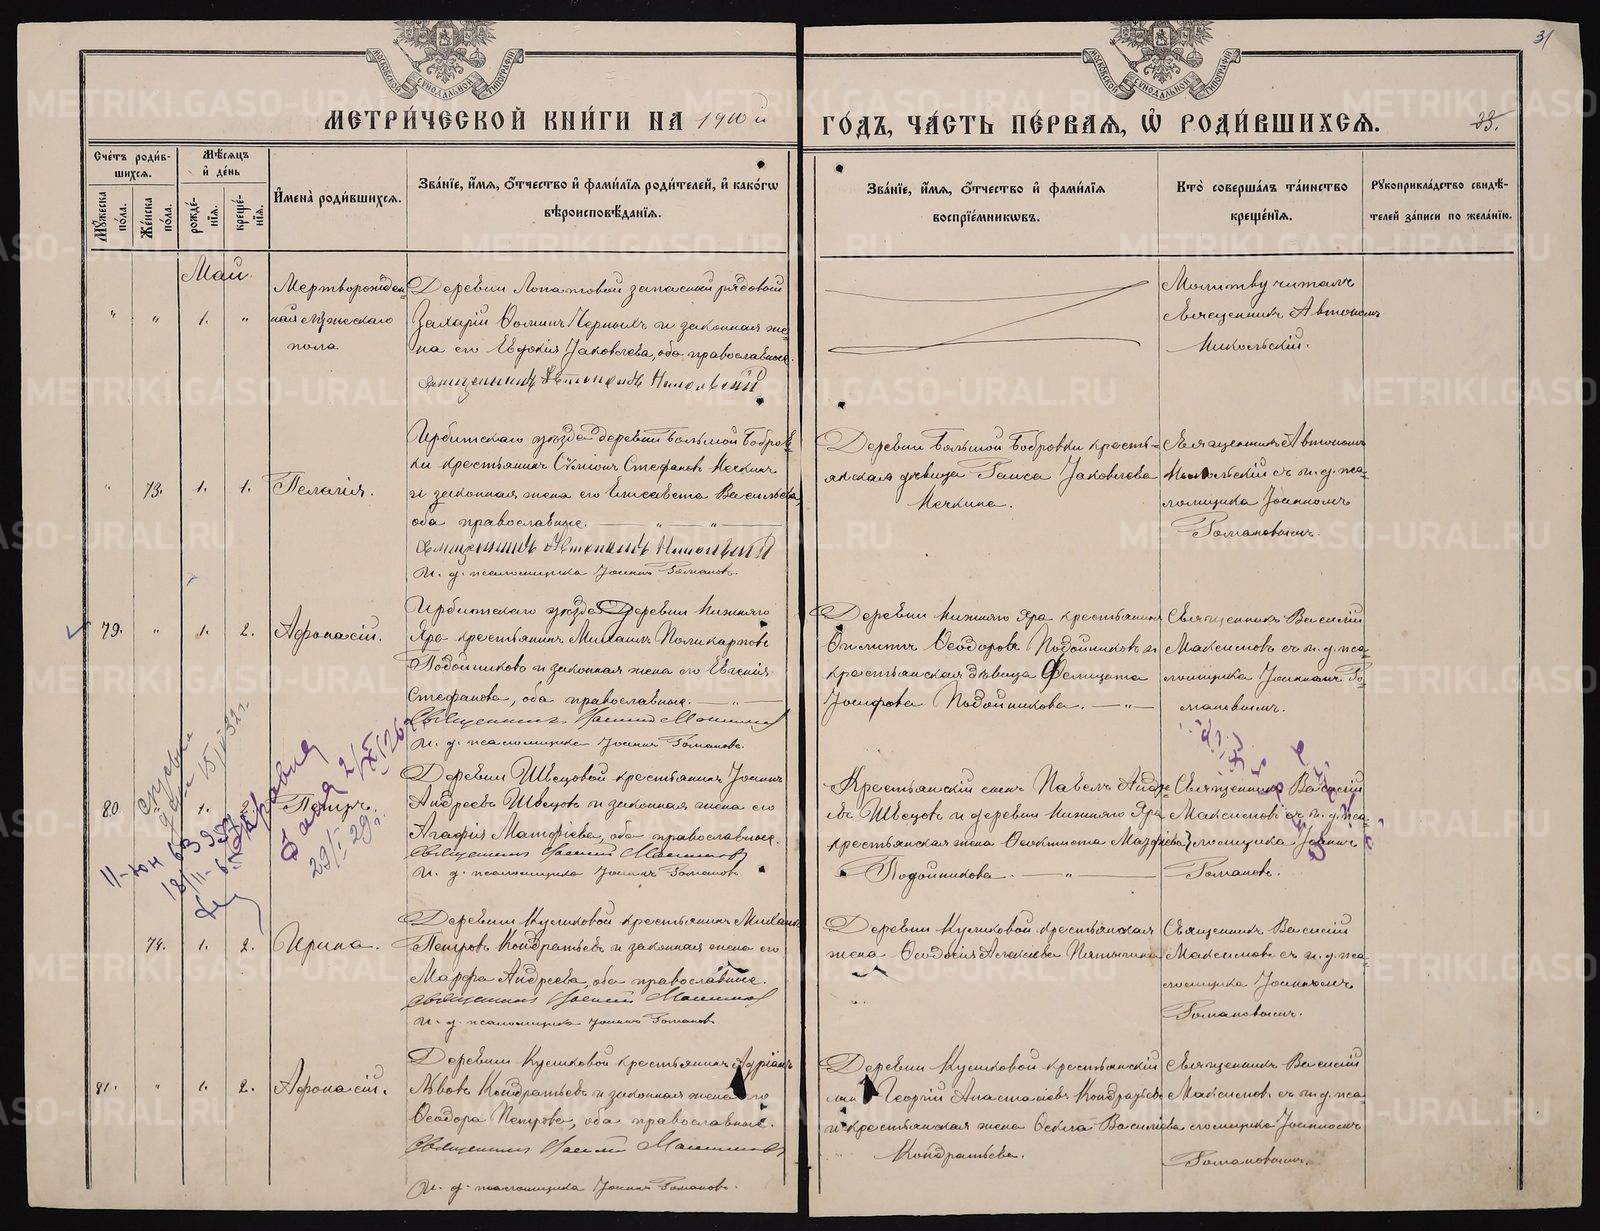 МОСКОВСКОЙ СѴНОДАЛЬНОЙ ТИПОГРАФІИ
МОСКОВСКОЙ СѴНОДАЛЬНОЙ ТИПОГРАФІИ
31
МЕТРИ́ЧЕСКОЙ КНИ́ГИ НА 1910 й ГО́ДЪ, ЧА́СТЬ ПЕ́РВАЯ, Ѽ РОДИ́ВШИХСЯ.
33.
Сче́тъ роди́в-
шихся.
Мѣ́сяцъ
и де́нь
Му́жеска по́ла.
Же́нска по́ла.
рожде́-
нїя.
креще́-
нїя.
Имена̀ роди́вшихся.
Зва́нїе, и́мя, о́тчество и фами́лїя роди́телей, и како́гѡ
вѣроисповѣ́данїя.
Зва́нїе, и́мя, о́тчество и фами́лїя
воспрїе́мникѡвъ.
Кто̀ соверша́лъ та́инство
креще́нїя.
Рукоприкла́дство свидѣ́-
телей за́писи по жела́нїю.
Май.
" " 1. "
Мертворожден-
ная мужескаго
пола
Деревни Лопатовой запасный рядовой
Захарій Ѳоминъ Черныхъ и законная же-
на его Евдокія Яковлева, оба православные.
Священникъ Автономъ Никольскій
Молитву читалъ
Священникъ Автономъ
Никольскій.
" 73. 1. 1.
Пелагія.
Ирбитскаго уѣзда деревни Большой Бобров-
ки крестьянинъ Сѵмеонъ Стефановъ Мечкинъ
и законная жена его Елисавета Васильева,
оба православные. — " — " —
Священникъ Автономъ Никольскій
И. д. псаломщика Іоаннъ Romановъ.
Деревни Большой Бобровки кресть-
янская дѣвица Таиса Яковлева
Мечкина.
Священникъ Автономъ
Никольскій съ и. д. пса-
ломщика Іоанномъ
Романовымъ.
79. " 1. 2.
Аѳонасій.
Ирбитскаго уѣзда Деревни Нижняго
Яра крестьянинъ Михаилъ Поликарповъ
Подойниковъ и законная жена его Евгенія
Стефанова, оба православные. — " —
Священникъ Василій Максимовъ
И. д. псаломщика Іоаннъ Романовъ.
Деревни Нижняго Яра крестьянинъ
Филиппъ Ѳеодоровъ Подойниковъ и
крестьянская дѣвица Фелицата
Іосифова Подойникова. — " —
Священникъ Василій
Максимовъ съ и. д. пса-
ломщика Іоанномъ Ро-
мановымъ.
80. 1. 2.
Петръ.
Деревни Швецовой крестьянинъ Іоаннъ
Андреевъ Швецовъ и законная жена его
Агафія Матѳіева, оба православные.
Священникъ Василій Максимовъ
И. д. псаломщика Іоаннъ Романовъ.
Крестьянскій сынъ Павелъ Андре-
евъ Швецовъ и деревни Нижняго Яра
крестьянская жена Ѳеоктиста Матѳіева
Подойникова. — " —
Священникъ Василій
Максимовъ съ и. д. пса-
ломщика Іоаннъ
Романовъ.
2/XI 26 г.
29/I 29 г.
74. 1. 2.
Ирина.
Деревни Куликовой крестьянинъ Михаилъ
Петровъ Кондратьевъ и законная жена его
Марѳа Андреева, оба православные.
Священникъ Василій Максимовъ
И. д. псаломщика Іоаннъ Романовъ.
Деревни Куликовой крестьянская
жена Ѳеодосія Алексіева Пятыгина
Священникъ Василій
Максимовъ съ и. д. пса-
ломщика Іоанномъ
Романовымъ.
81. " 1. 2.
Аѳонасій.
Деревни Куликовой крестьянинъ Адріанъ
Львовъ Кондратьевъ и законная жена его
Ѳеодора Петрова, оба православные.
Священникъ Василій Максимовъ
И. д. псаломщика Іоаннъ Романовъ.
Деревни Куликовой крестьянскій
сынъ Георгій Анастасіевъ Кондратьевъ
и крестьянская жена Ѳекла Василіева
Кондратьева.
Священникъ Василій
Максимовъ съ и. д. пса-
ломщика Іоанномъ
Романовымъ.
METRIKI.GASO-URAL.RU